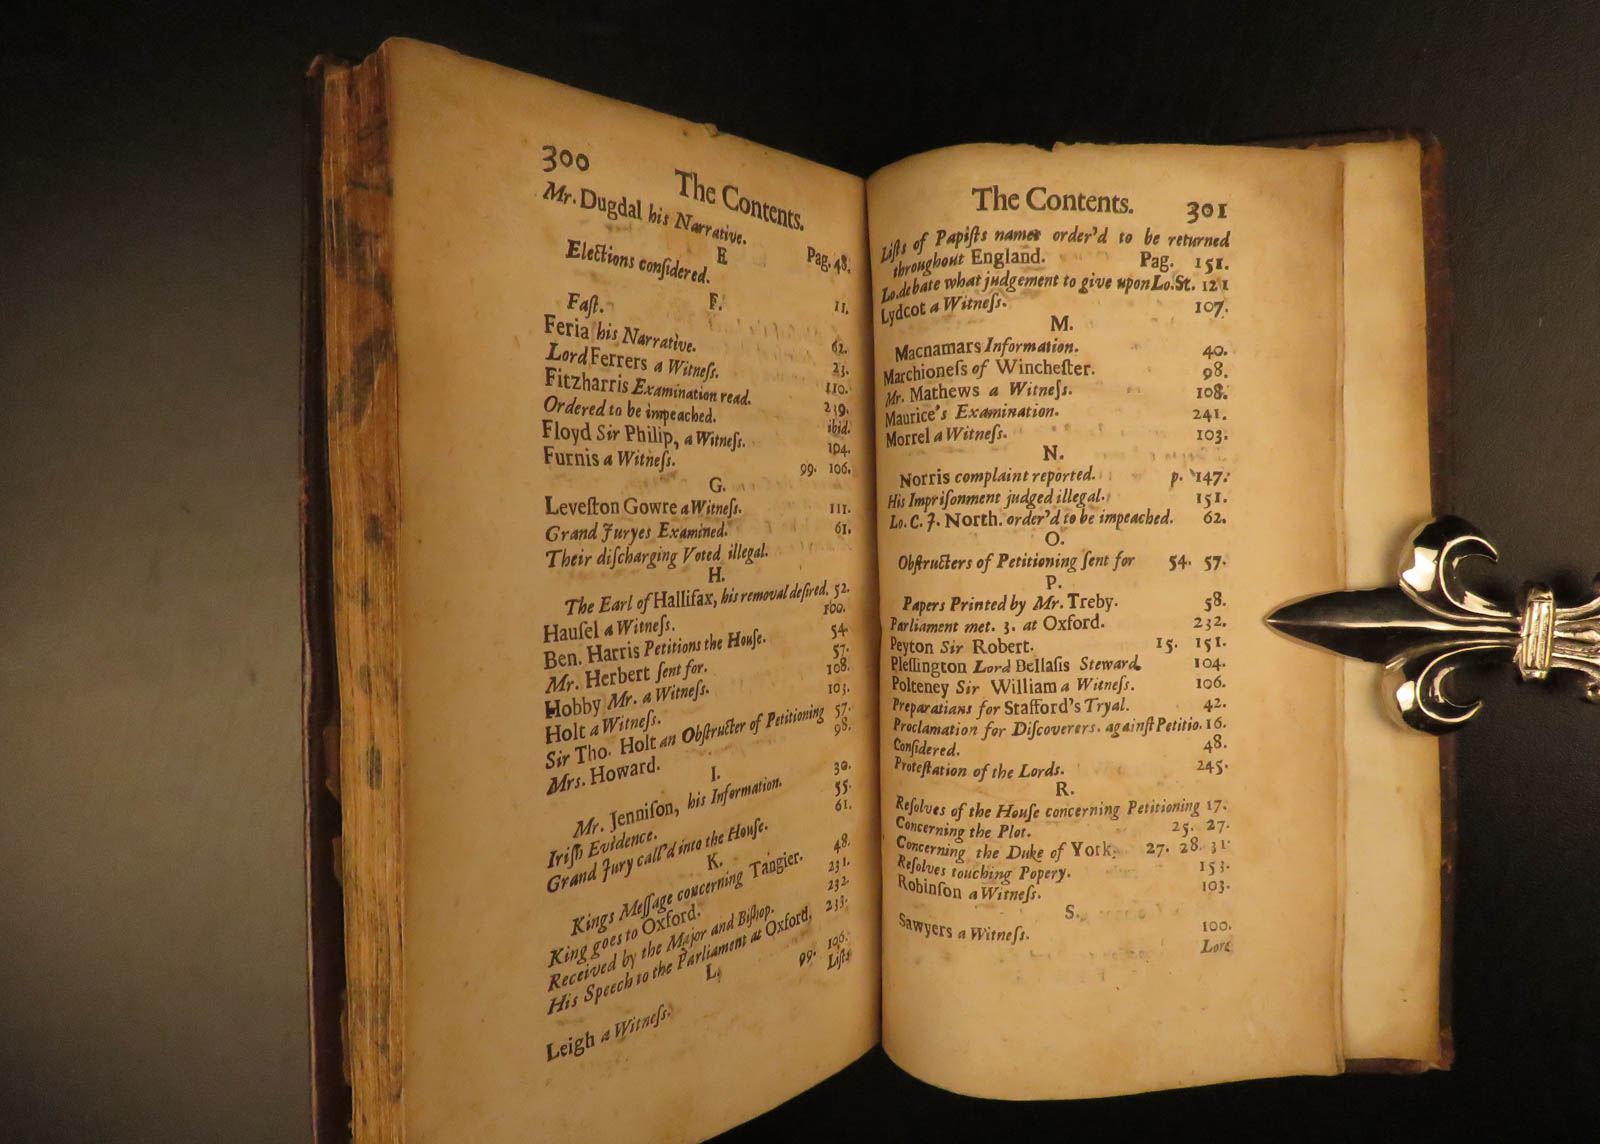 300
The Contents.
Mr. Dugdal his Narrative.
Pag. 48.
E
Elections conſidered.
11.
F.
Faſt.
62.
Feria his Narrative.
23.
Lord Ferrers a Witneſs.
110.
Fitzharris Examination read.
239.
Ordered to be impeached.
ibid.
Floyd Sir Philip, a Witneſs.
104.
Furnis a Witneſs.
99. 106.
G.
Leveſton Gowre a Witneſs.
111.
Grand Juryes Examined.
61.
Their diſcharging Voted illegal.
H.
The Earl of Hallifax, his removal deſired. 52.
Hauſel a Witneſs.
100.
Ben. Harris Petitions the Houſe.
54.
Mr. Herbert ſent for.
57.
Hobby Mr. a Witneſs.
108.
Holt a Witneſs.
103.
Sir Tho. Holt an Obſtructer of Petitioning 57.
Mrs. Howard.
98.
I.
Mr. Jenniſon, his Information.
30.
Iriſh Evidence.
55.
Grand Jury call'd into the Houſe.
61.
K.
Kings Meſſage concerning Tangier.
48.
King goes to Oxford.
231.
Received by the Major and Biſhop.
232.
His Speech to the Parliament at Oxford,
233.
L.
Leigh a Witneſs.
99. 106.
Liſts
The Contents. 301
Liſts of Papiſts names order'd to be returned
throughout England. Pag. 151.
Lo. debate what judgement to give upon Lo. St. 121
Lydcot a Witneſs. 107.
M.
Macnamars Information. 40.
Marchioneſs of Wincheſter. 98.
Mr. Mathews a Witneſs. 108.
Maurice's Examination. 241.
Morrel a Witneſs. 103.
N.
Norris complaint reported. p. 147.
His Impriſonment judged illegal. 151.
Lo. C. J. North. order'd to be impeached. 62.
O.
Obſtructers of Petitioning ſent for 54. 57.
P.
Papers Printed by Mr. Treby. 58.
Parliament met. 3. at Oxford. 232.
Peyton Sir Robert. 15. 151.
Pleſſington Lord Bellaſis Steward. 104.
Polteney Sir William a Witneſs. 106.
Preparatians for Stafford's Tryal. 42.
Proclamation for Diſcoverers. againſt Petitio. 16.
Conſidered. 48.
Proteſtation of the Lords. 245.
R.
Reſolves of the Houſe concerning Petitioning 17.
Concerning the Plot. 25. 27.
Concerning the Duke of York. 27. 28. 31.
Reſolves touching Popery. 153.
Robinſon a Witneſs. 103.
S.
Sawyers a Witneſs. 100.
Lore